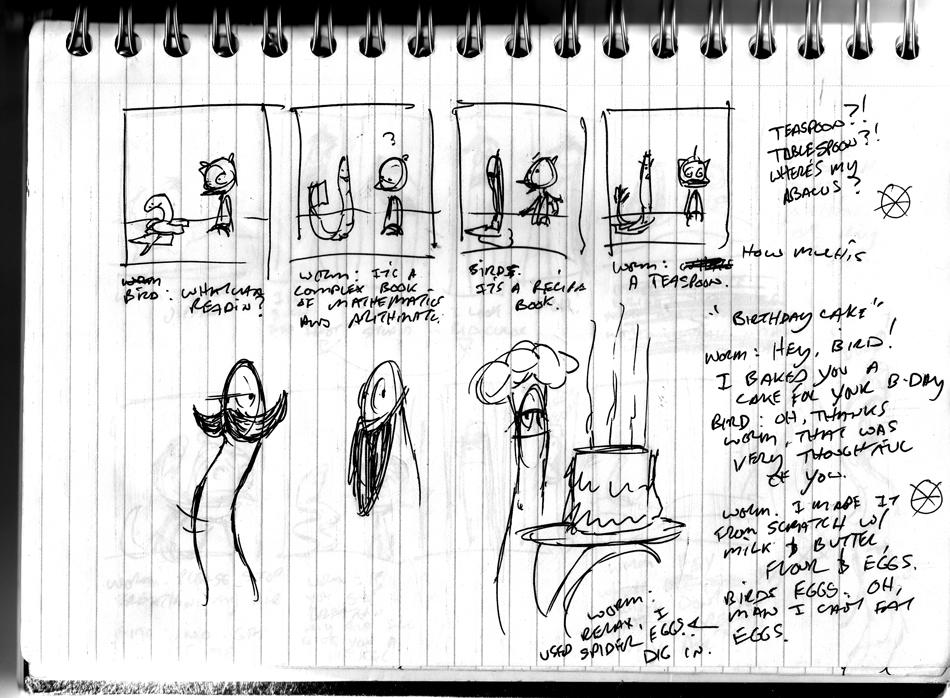 BIRD: WHATCHA
READIN?
WORM: IT'S A
COMPLEX BOOK
OF MATHEMATICS
AND ARITHMATIC.
BIRD:
IT'S A RECIPE
BOOK.
WORM: HOW MUCH IS
A TEASPOON.
TEASPOON?!
TABLESPOON?!
WHERE'S MY
ABACUS?
"BIRTHDAY CAKE"
WORM: HEY, BIRD!
I BAKED YOU A
CAKE FOR YOUR B-DAY
BIRD: OH, THANKS
WORM, THAT WAS
VERY THOUGHTFUL
OF YOU.
WORM. I MADE IT
FROM SCRATCH W/
MILK & BUTTER,
FLOUR & EGGS.
BIRD: EGGS. OH,
MAN I CAN'T EAT
EGGS.
WORM:
RELAX, I
USED SPIDER EGGS.
DIG IN.